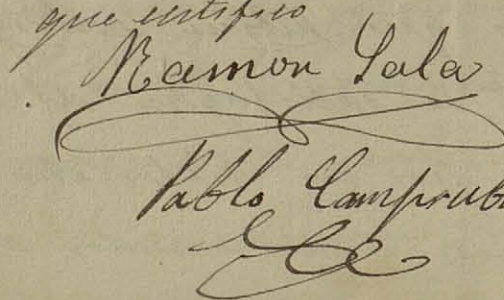 que certifico
Ramon Sala
Pablo Camprubi